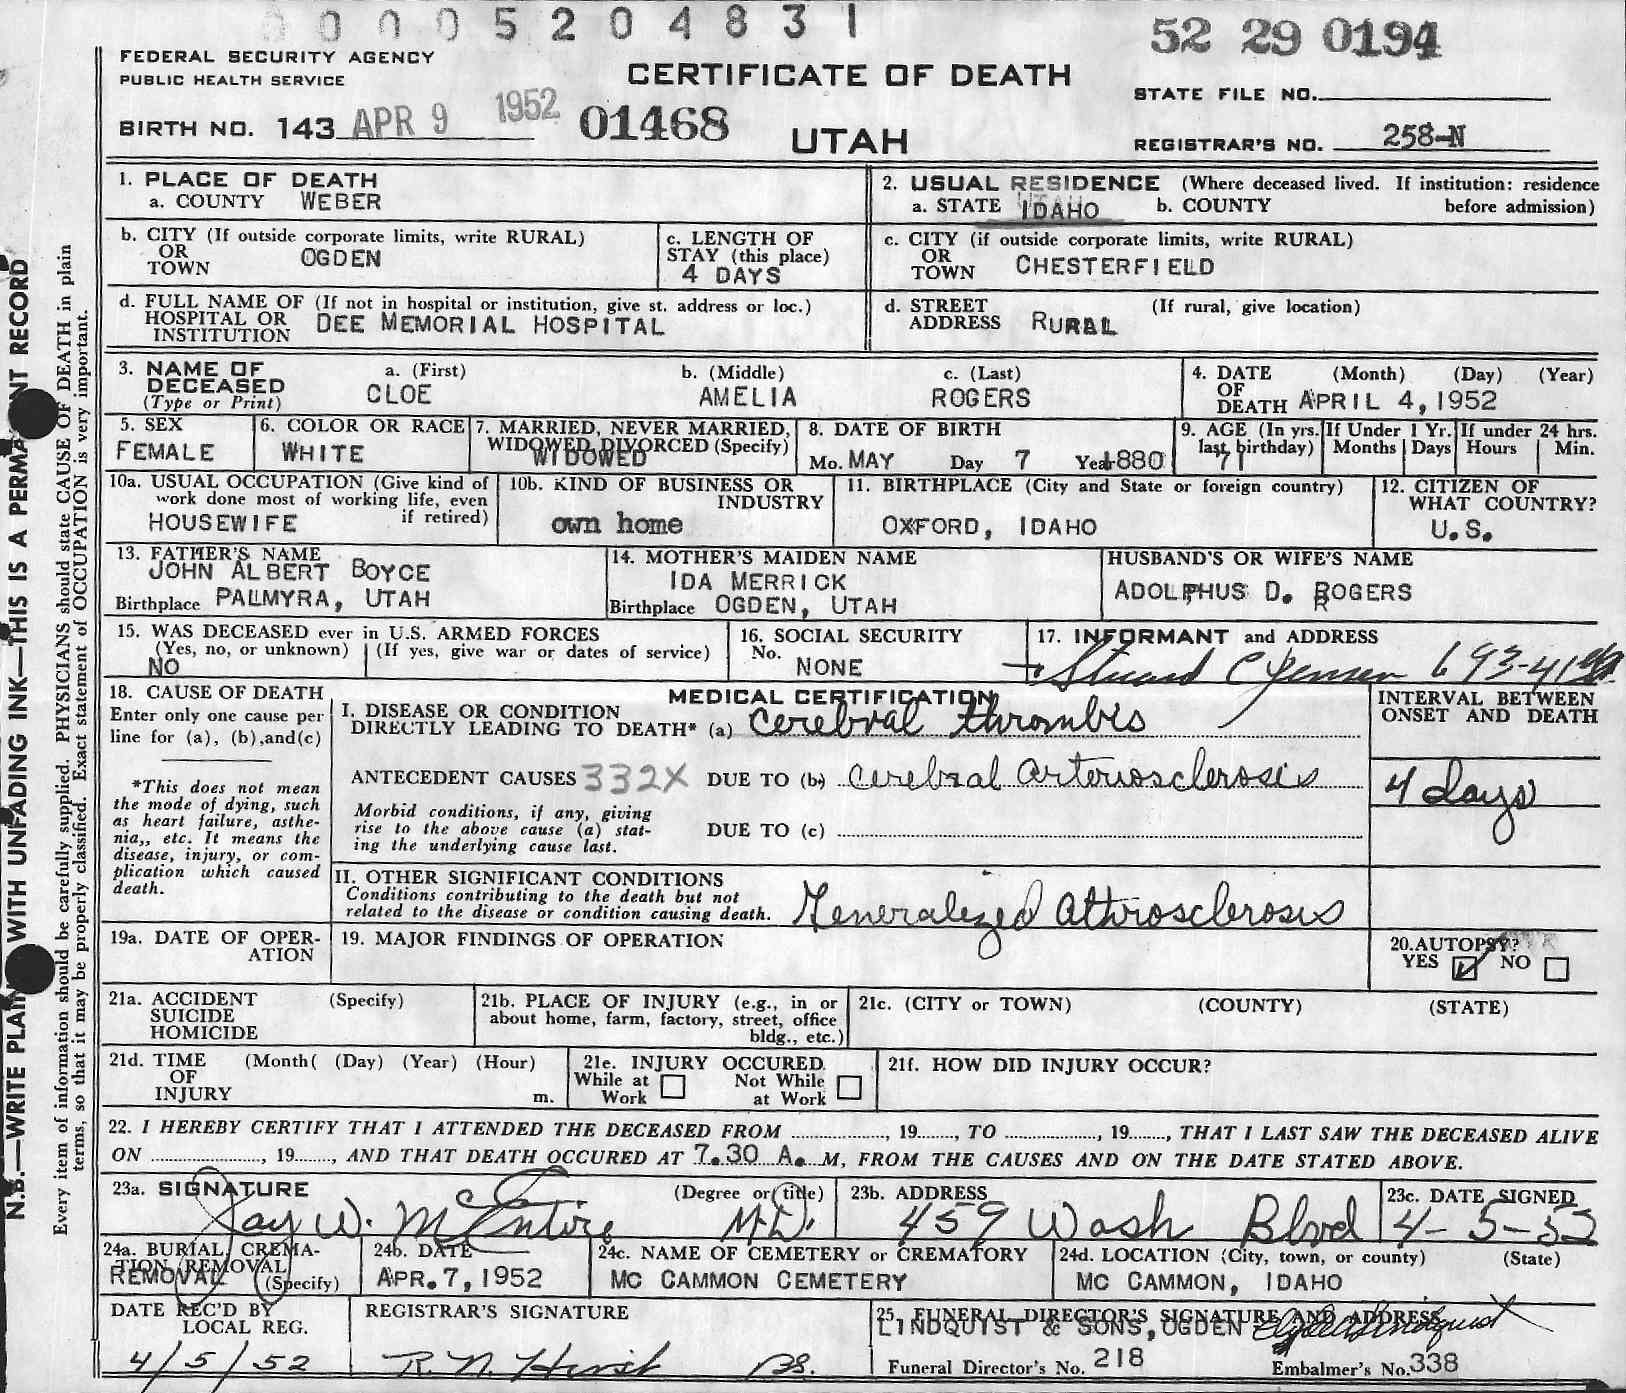 00005204831
52 29 0194
FEDERAL SECURITY AGENCY
PUBLIC HEALTH SERVICE
CERTIFICATE OF DEATH
STATE FILE NO.
BIRTH NO. 143 APR 9 1952 01468
UTAH
REGISTRAR'S NO. 258-N
1. PLACE OF DEATH
a. COUNTY WEBER
2. USUAL RESIDENCE (Where deceased lived. If institution: residence
a. STATE IDAHO b. COUNTY before admission)
b. CITY (If outside corporate limits, write RURAL)
OR
TOWN OGDEN
c. LENGTH OF
STAY (this place)
4 DAYS
c. CITY (if outside corporate limits, write RURAL)
OR
TOWN CHESTERFIELD
d. FULL NAME OF (If not in hospital or institution, give st. address or loc.)
HOSPITAL OR
INSTITUTION DEE MEMORIAL HOSPITAL
d. STREET (If rural, give location)
ADDRESS RURAL
3. NAME OF
DECEASED
(Type or Print)
a. (First) b. (Middle) c. (Last)
CLOE AMELIA ROGERS
4. DATE (Month) (Day) (Year)
OF
DEATH APRIL 4, 1952
5. SEX
FEMALE
6. COLOR OR RACE
WHITE
7. MARRIED, NEVER MARRIED,
WIDOWED, DIVORCED (Specify)
WIDOWED
8. DATE OF BIRTH
Mo. MAY Day 7 Year 1880
9. AGE (In yrs.
last birthday)
71
If Under 1 Yr.
Months Days
If under 24 hrs.
Hours Min.
10a. USUAL OCCUPATION (Give kind of
work done most of working life, even
if retired)
HOUSEWIFE
10b. KIND OF BUSINESS OR
INDUSTRY
own home
11. BIRTHPLACE (City and State or foreign country)
OXFORD, IDAHO
12. CITIZEN OF
WHAT COUNTRY?
U.S.
13. FATHER'S NAME
JOHN ALBERT BOYCE
Birthplace PALMYRA, UTAH
14. MOTHER'S MAIDEN NAME
IDA MERRICK
Birthplace OGDEN, UTAH
HUSBAND'S OR WIFE'S NAME
ADOLPHUS D. ROGERS
15. WAS DECEASED ever in U.S. ARMED FORCES
(Yes, no, or unknown) (If yes, give war or dates of service)
NO
16. SOCIAL SECURITY
No.
NONE
17. INFORMANT and ADDRESS
Stuard C Jensen 693-41st
18. CAUSE OF DEATH
Enter only one cause per
line for (a), (b),and(c)
*This does not mean
the mode of dying, such
as heart failure, asthe-
nia,, etc. It means the
disease, injury, or com-
plication which caused
death.
MEDICAL CERTIFICATION
I. DISEASE OR CONDITION
DIRECTLY LEADING TO DEATH* (a) Cerebral thrombis
ANTECEDENT CAUSES 332X DUE TO (b) Cerebral Arteriosclerosis
Morbid conditions, if any, giving
rise to the above cause (a) stat-
ing the underlying cause last.
DUE TO (c)
INTERVAL BETWEEN
ONSET AND DEATH
4 days
II. OTHER SIGNIFICANT CONDITIONS
Conditions contributing to the death but not
related to the disease or condition causing death.
Generalized Athrosclerosis
19a. DATE OF OPER-
ATION
19. MAJOR FINDINGS OF OPERATION
20. AUTOPSY?
YES NO
21a. ACCIDENT (Specify)
SUICIDE
HOMICIDE
21b. PLACE OF INJURY (e.g., in or
about home, farm, factory, street, office
bldg., etc.)
21c. (CITY or TOWN) (COUNTY) (STATE)
21d. TIME (Month( (Day) (Year) (Hour)
OF
INJURY m.
21e. INJURY OCCURED
While at Work Not While at Work
21f. HOW DID INJURY OCCUR?
22. I HEREBY CERTIFY THAT I ATTENDED THE DECEASED FROM , 19 , TO , 19 , THAT I LAST SAW THE DECEASED ALIVE
ON , 19 , AND THAT DEATH OCCURED AT 7.30 A. M, FROM THE CAUSES AND ON THE DATE STATED ABOVE.
23a. SIGNATURE (Degree or title)
Jay W. McEntire M.D.
23b. ADDRESS
459 Wash Blvd
23c. DATE SIGNED
4-5-52
24a. BURIAL, CREMA-
TION (REMOVAL)
REMOVAL (Specify)
24b. DATE
APR. 7, 1952
24c. NAME OF CEMETERY or CREMATORY
MC CAMMON CEMETERY
24d. LOCATION (City, town, or county) (State)
MC CAMMON, IDAHO
DATE REC'D BY
LOCAL REG.
4/5/52
REGISTRAR'S SIGNATURE
R. N. Hirst BS.
25. FUNERAL DIRECTOR'S SIGNATURE AND ADDRESS
LINDQUIST & SONS, OGDEN
Funeral Director's No. 218 Embalmer's No. 338
N.B.—WRITE PLAIN WITH UNFADING INK—THIS IS A PERMANENT RECORD
Every item of information should be carefully supplied. PHYSICIANS should state CAUSE OF DEATH in plain
terms, so that it may be properly classified. Exact statement of OCCUPATION is very important.